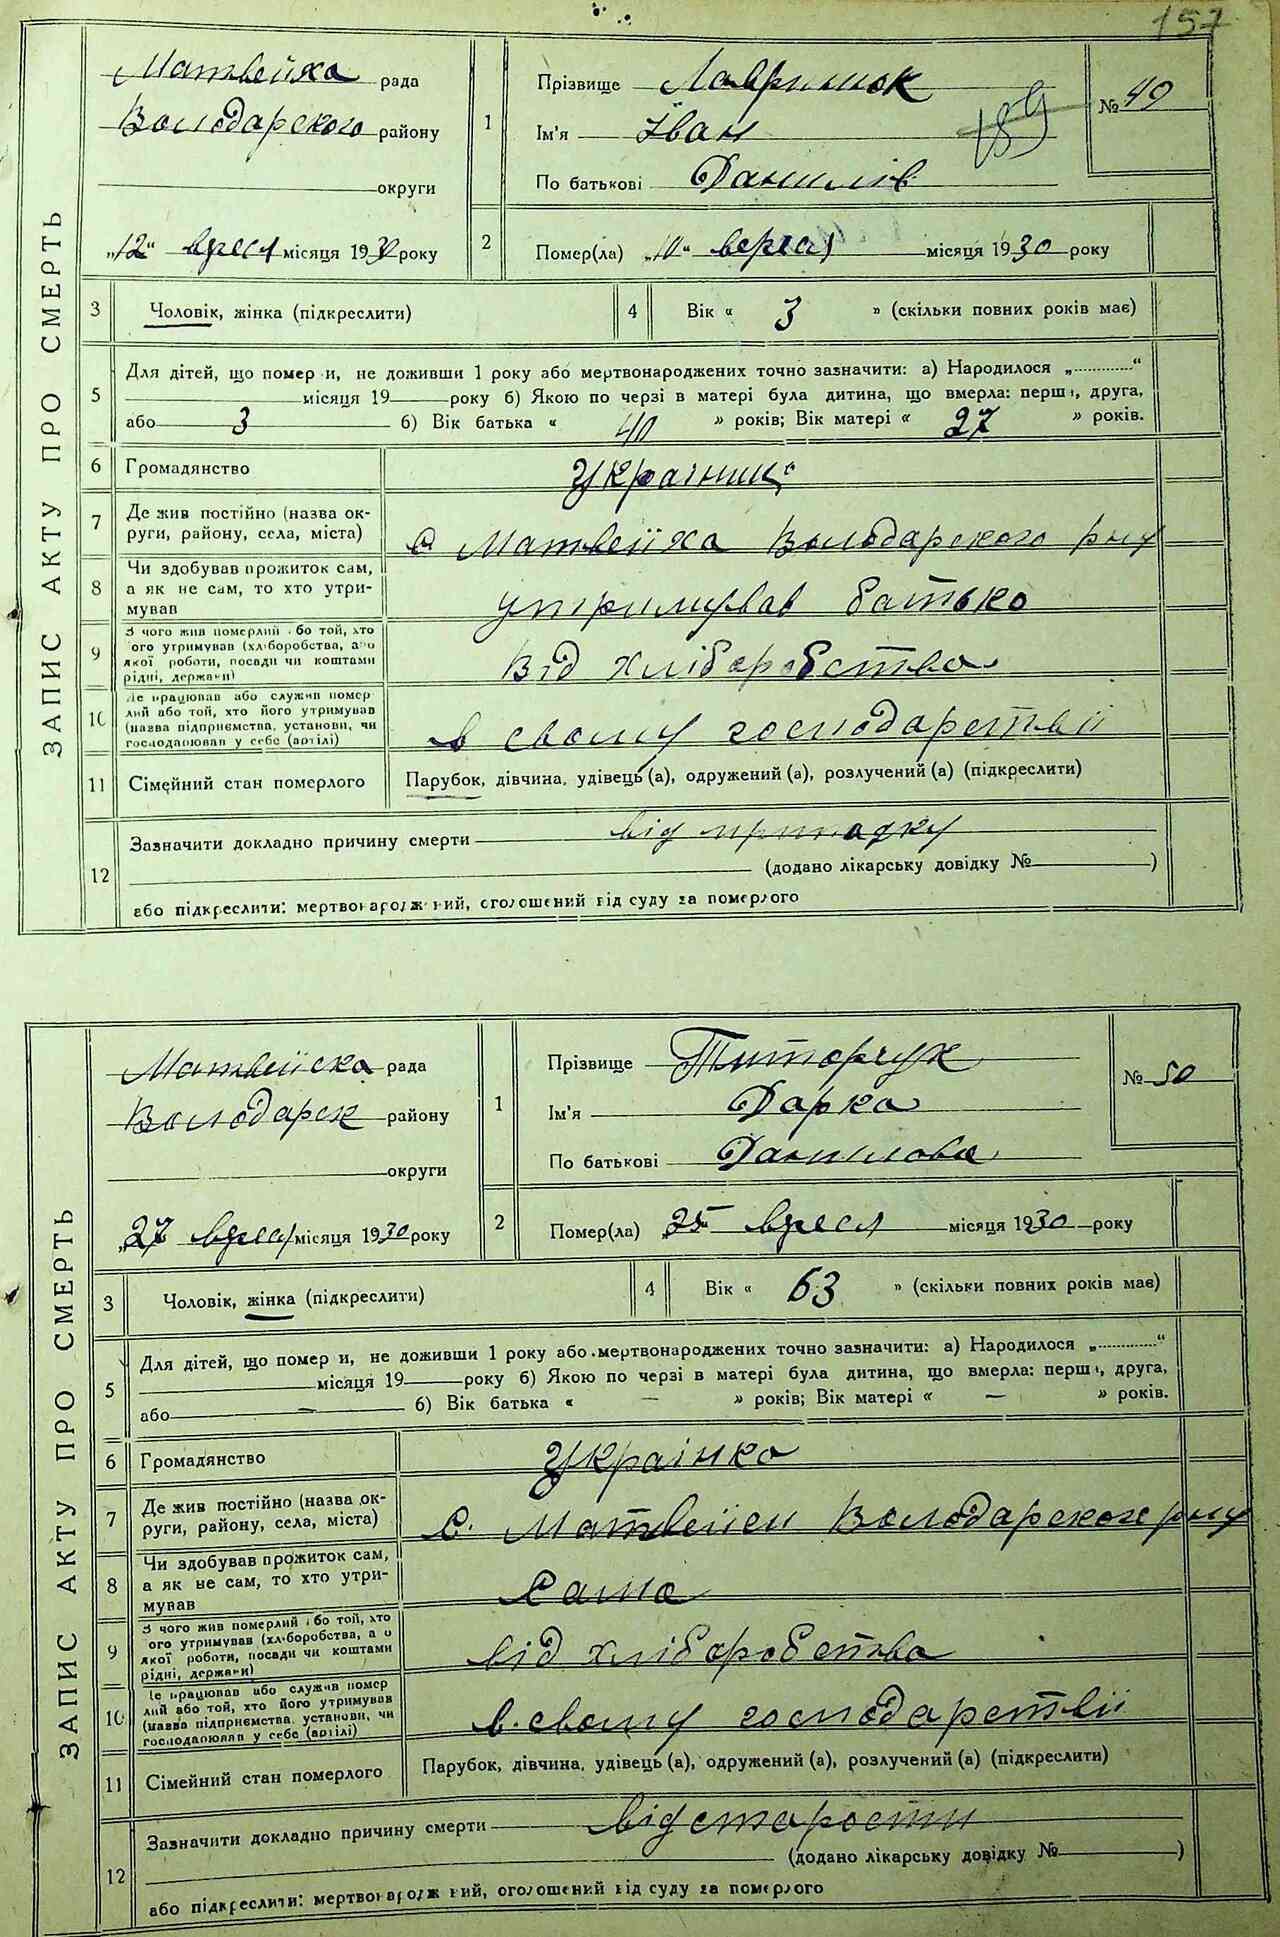 157
ЗАПИС АКТУ ПРО СМЕРТЬ
Матвейха рада
Володарского району
округи
„12" вресл місяця 1930 року
1
Прізвище Лавринюк
Ім'я Іван
По батькові Данилів
189
№ 49
2
Помер(ла) „10" вересл місяця 1930 року
3 Чоловік, жінка (підкреслити)
4 Вік « 3 » (скільки повних років має)
5 Для дітей, що помер и, не доживши 1 року або мертвонароджених точно зазначити: а) Народилося „............"
місяця 19 року б) Якою по черзі в матері була дитина, що вмерла: перша, друга,
або 3 б) Вік батька « 40 » років; Вік матері « 27 » років.
6 Громадянство Украінец
7 Де жив постійно (назва ок-
руги, району, села, міста) с Матвейха Володарского р-ну
8 Чи здобував прожиток сам,
а як не сам, то хто утри-
мував утримував батько
9 З чого жив померлий або той, хто
ого утримував (хліборобства, або
якої роботи, посади чи коштами
рідні, держави) Від хліборобства
10 Де працював або служив помер
лий або той, хто його утримував
(назва підприємства, установи, чи
господарював у себе (артілі) в свому господарствіі
11 Сімейний стан померлого Парубок, дівчина, удівець (а), одружений (а), розлучений (а) (підкреслити)
12 Зазначити докладно причину смерти від припадку
(додано лікарську довідку № )
або підкреслити: мертвонароджений, оголошений від суду за померлого
ЗАПИС АКТУ ПРО СМЕРТЬ
Матвейска рада
Володарск району
округи
„27 вресл місяця 1930 року
1
Прізвище Титорчук
Ім'я Дарка
По батькові Данилова
№ 50
2
Помер(ла) 25 вресл місяця 1930 року
3 Чоловік, жінка (підкреслити)
4 Вік « 63 » (скільки повних років має)
5 Для дітей, що помер и, не доживши 1 року або мертвонароджених точно зазначити: а) Народилося „............"
місяця 19 року б) Якою по черзі в матері була дитина, що вмерла: перша, друга,
або — б) Вік батька « — » років; Вік матері « — » років.
6 Громадянство Украінка
7 Де жив постійно (назва ок-
руги, району, села, міста) с. Володарского р-ну
8 Чи здобував прожиток сам,
а як не сам, то хто утри-
мував Сама
9 З чого жив померлий або той, хто
ого утримував (хліборобства, або
якої роботи, посади чи коштами
рідні, держави) від хліборобства
10 Де працював або служив помер
лий або той, хто його утримував
(назва підприємства, установи, чи
господарював у себе (артілі) в свому господарствіі
11 Сімейний стан померлого Парубок, дівчина, удівець (а), одружений (а), розлучений (а) (підкреслити)
12 Зазначити докладно причину смерти від старости
(додано лікарську довідку № )
або підкреслити: мертвонароджений, оголошений від суду за померлого